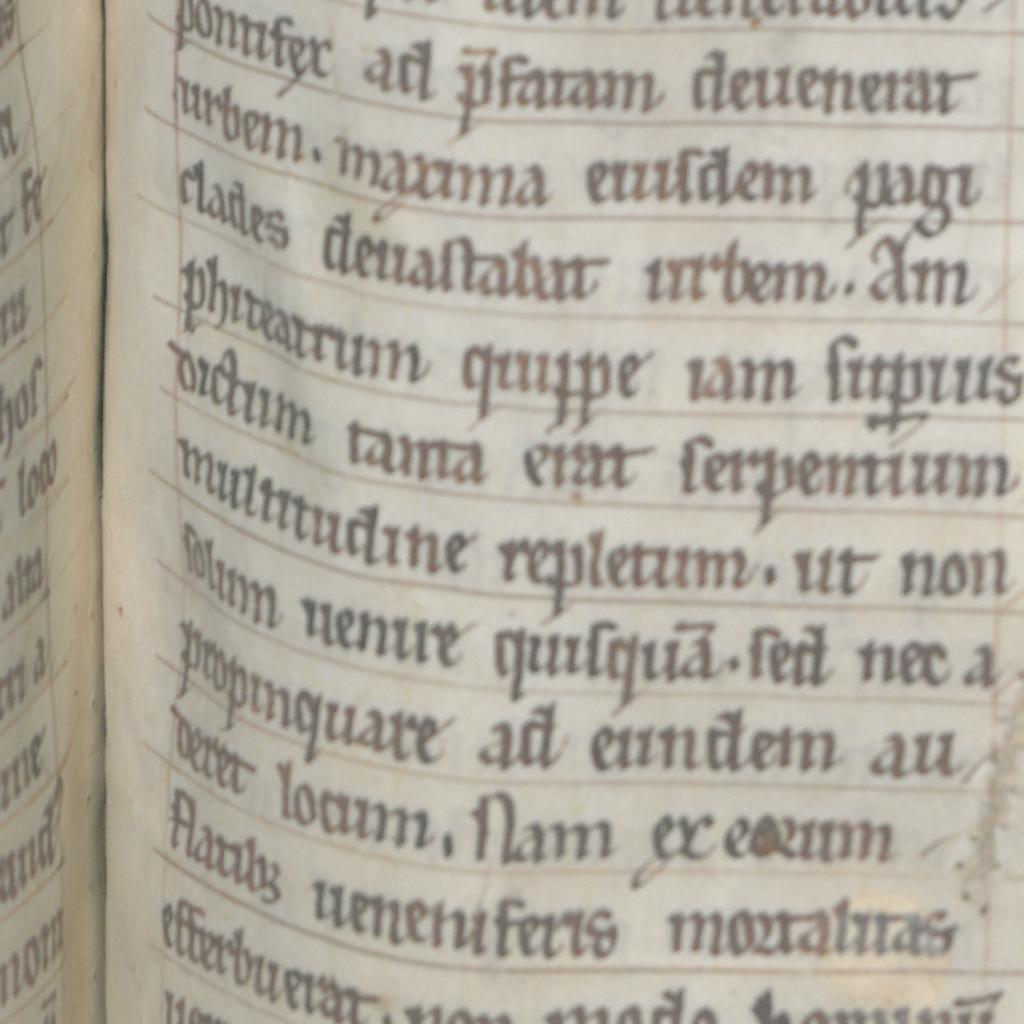 pontifex ad p̄fatam deuenerat
urbem. maxima eiuſdem pagi
clades deuaſtabat urbem. Am
phiteatrum quippe iam ſuꝑius
dictum tanta erat ſerpentium
multitudine repletum. ut non
ſolum uenire quiſquā. ſed nec a
propinquare ad eundem au
deret locum. Nam ex eorum
flatibꝫ ueneniferis mortalitas
efferbuerat. non modo hominū